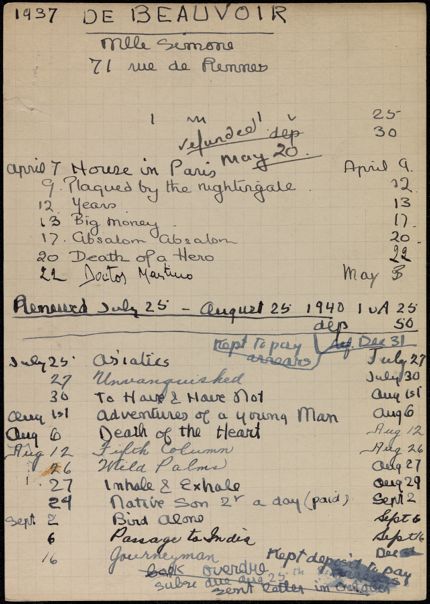 1937 DE BEAUVOIR
Mlle Simone
71 rue de Rennes
1 m 25
refunded dep 30
May 20
april 7 House in Paris April 9
9. Plaqued by the nightingale. 12
12 Years 13
13 Big Money 17
17. Absalom Absalom 20
20 Death of a Hero 22
22 Doctor Martino May 3
Renewed July 25 - August 25 1940 1 25
dep 50
Kept to pay arrears Dec 31
July 25 Asiatics July 27
27 Unvanquished July 30
30 To Have & Have Not Aug 1st
Aug 1st Adventures of a young Man Aug 6
Aug 6 Death of the Heart Aug 12
Aug 12 Fifth Column Aug 26
26 Wild Palms Aug 27
27 Inhale & Exhale Aug 29
29 Native Son 2r a day (paid) Sept 2
Sept 2 Bird Alone Sept 6
6 Passage to India Sept 16
16 Journeyman Dec
Kept deposit to pay
book overdue
subs due 25
sent letter in October